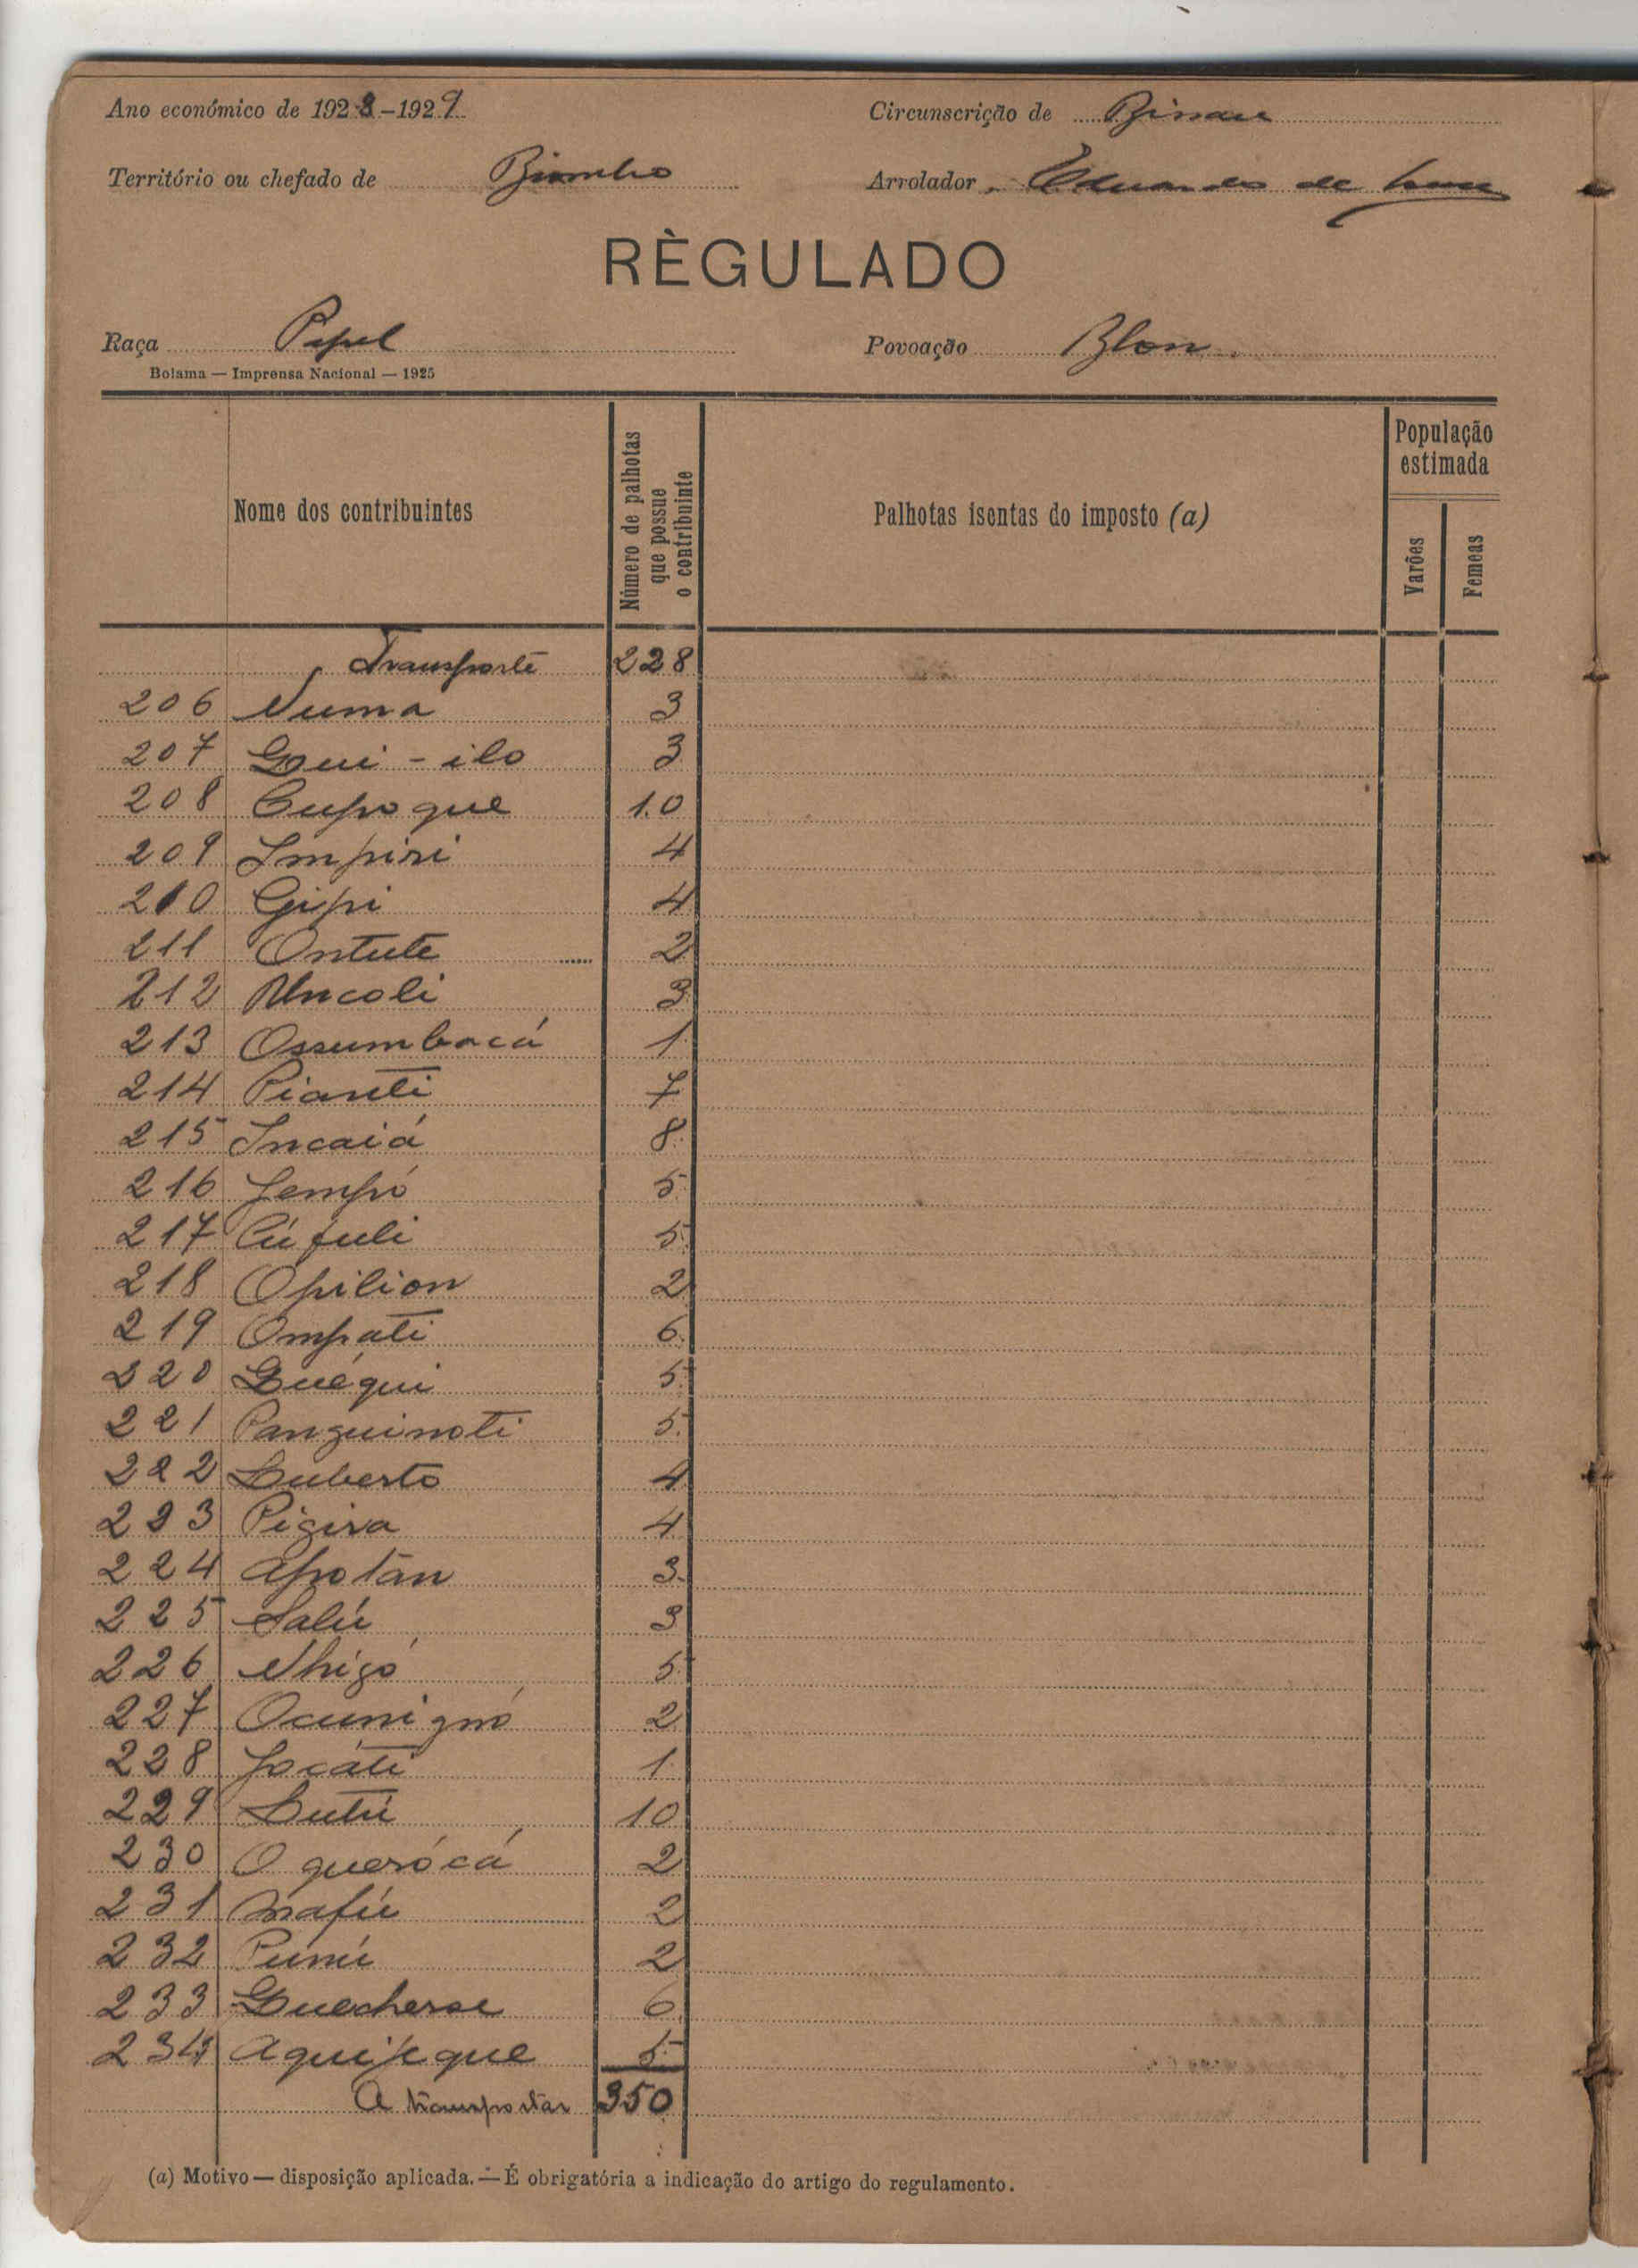 Ano económico de 1928-1929
Circunscrição de Bissau
Território ou chefado de Biombo
Arrolador Eduardo de
RÈGULADO
Raça Papel
Povoação Blon
Bolama — Imprensa Nacional — 1925
Nome dos contribuintes
Número de palhotas que possue o contribuinte
Palhotas isentas do imposto (a)
População estimada
Varões
Femeas
Transporte 228
206 Numa 3
207 Gui-ilo 3
208 Cupoque 10
209 Impiri 4
210 Gipi 4
211 Ontute 2
212 Uncoli 3
213 Ossumbacá 1
214 Pianti 7
215 Incaiá 8
216 Jempó 5
217 Cúfuli 5
218 Opilion 2
219 Ompati 6
220 Guégui 5
221 Panguinoti 5
222 Luberto 4
223 Pigira 4
224 Apotan 3
225 Salú 3
226 Nhigó 5
227 Ocunignó 2
228 Jocáti 1
229 Lutú 10
230 Oquerócá 2
231 Mafú 2
232 Púnú 2
233 6
234 Aquijeque 5
A transportar 350
(a) Motivo — disposição aplicada. — É obrigatória a indicação do artigo do regulamento.